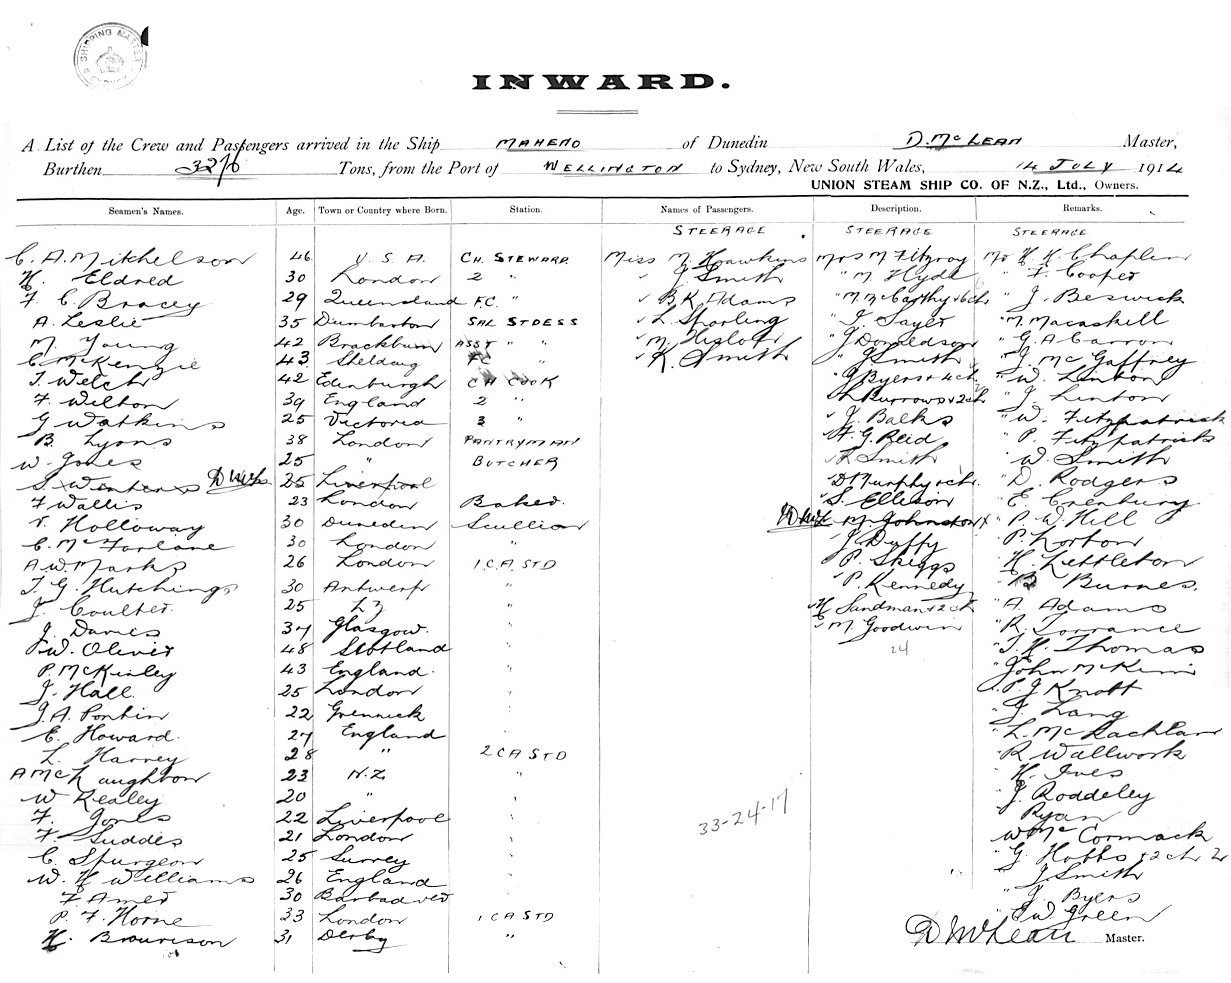 SHIPPING MASTER
SYDNEY
INWARD.
A List of the Crew and Passengers arrived in the Ship MAHENO of Dunedin D. McLEAN Master,
Burthen 3276 Tons, from the Port of WELLINGTON to Sydney, New South Wales, 14 JULY 1914
UNION STEAM SHIP CO. OF N.Z., Ltd., Owners.
Seamen's Names. Age. Town or Country where Born. Station. Names of Passengers. Description. Remarks.
STEERAGE STEERAGE STEERAGE
C. A. Mitchelson 46 U.S.A. CH. STEWARD Miss M. Hawkins Mrs M Fitzroy Mr H. K. Chaplin
H. Eldred 30 London 2 " " J. Smith " M. Hyde " F. Cooper
F. C. Bracey 29 Queensland F.C. " " B K Adams " M McCarthy + 6 ch " J. Beswick
A. Leslie 35 Dumbarton SAL STDESS " L. Sparling " J. Sayer " M. Macaskill
M. Young 42 Blackburn ASST " " " M. Hislop " J Donaldson " G A Carron
C. McKenzie 43 " " K. Smith " J Smith " J. McGaffrey
T. Welch 42 Edinburgh CH COOK " J Byers + 4 ch " W. Linton
F. Wilton 39 England 2 " " L Burrows + 2 ch " J. Linton
G Watkins 25 Victoria 3 " " J. Balks " W. Fitzpatrick
B. Lyons 38 London PANTRYMAN " F. G. Reid " P. Fitzpatrick
W. Jones 25 " BUTCHER " R Smith " W. Smith
S. Winters D McL 25 Liverpool " D Murphy + ch " D. Rodgers
F Wallis 23 London Baker " S. Ellison " E. Crenbury
V. Holloway 30 Dunedin Scullion " M. Johnston " P. W. Hill
C. McFarlane 30 London " " J Duffy " P. Lorton
A W Marks 26 London 1.C.A. STD " P. Skiggs " H. Lettleton
T. G. Hutchings 30 Antwerp " " P. Kennedy " B. Burnes.
J. Coulter 25 " " H Sandman + 2 ch " A. Adams
J. Davies 34 Glasgow. " " M. Goodwin " R. Torrance
W. Oliver 48 Scotland " 24 " T. H. Thomas
P. McKinley 43 England. " " John McKimm
J. Hall 25 London " " P. J Knott
J. A. Pontin 22 " " J. Lang
E. Howard 27 England " " L. McLachlan
L. Harvey 28 " 2 C A STD " R Wallwork
A McNaughton 23 N.Z. " " H. Ives
W Kealey 20 " " " J. Roddeley
F. Jones 22 Liverpool " " Ryan
F. Suddes 21 London " 33-24-17 " W McCormack
C. Spurgeon 25 Surrey " " G. Hobbs + 2 ch 2
W. H Williams 26 England " " J. Smith
F Ames 30 Barbadoes " " J. Byers
P. F. Horne 33 London 1 C A STD " W. Green
H. Brownson 31 Derby "
D McLean Master.